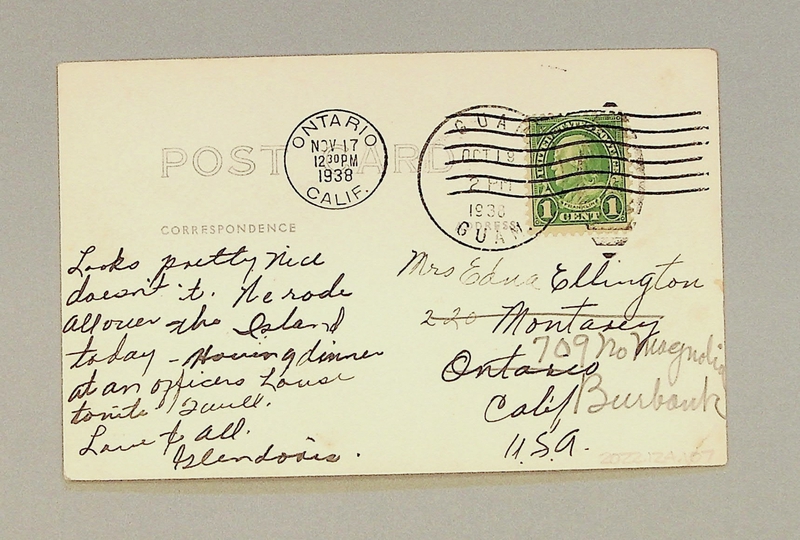 POST CARD
ONTARIO
NOV 17
12 30 PM
1938
CALIF.
GUAM
OCT 19
2 PM
1938
GUAM
1 CENT 1
CORRESPONDENCE
Looks pretty nice
doesn't it. We rode
all over the Island
today - Having dinner
at an officers house
tonite
Love to all.
Glendoris.
Mrs Edna Ellington
220 Monterey
709 No Magnolia
Ontario
Calif Burbank
U.S.A.